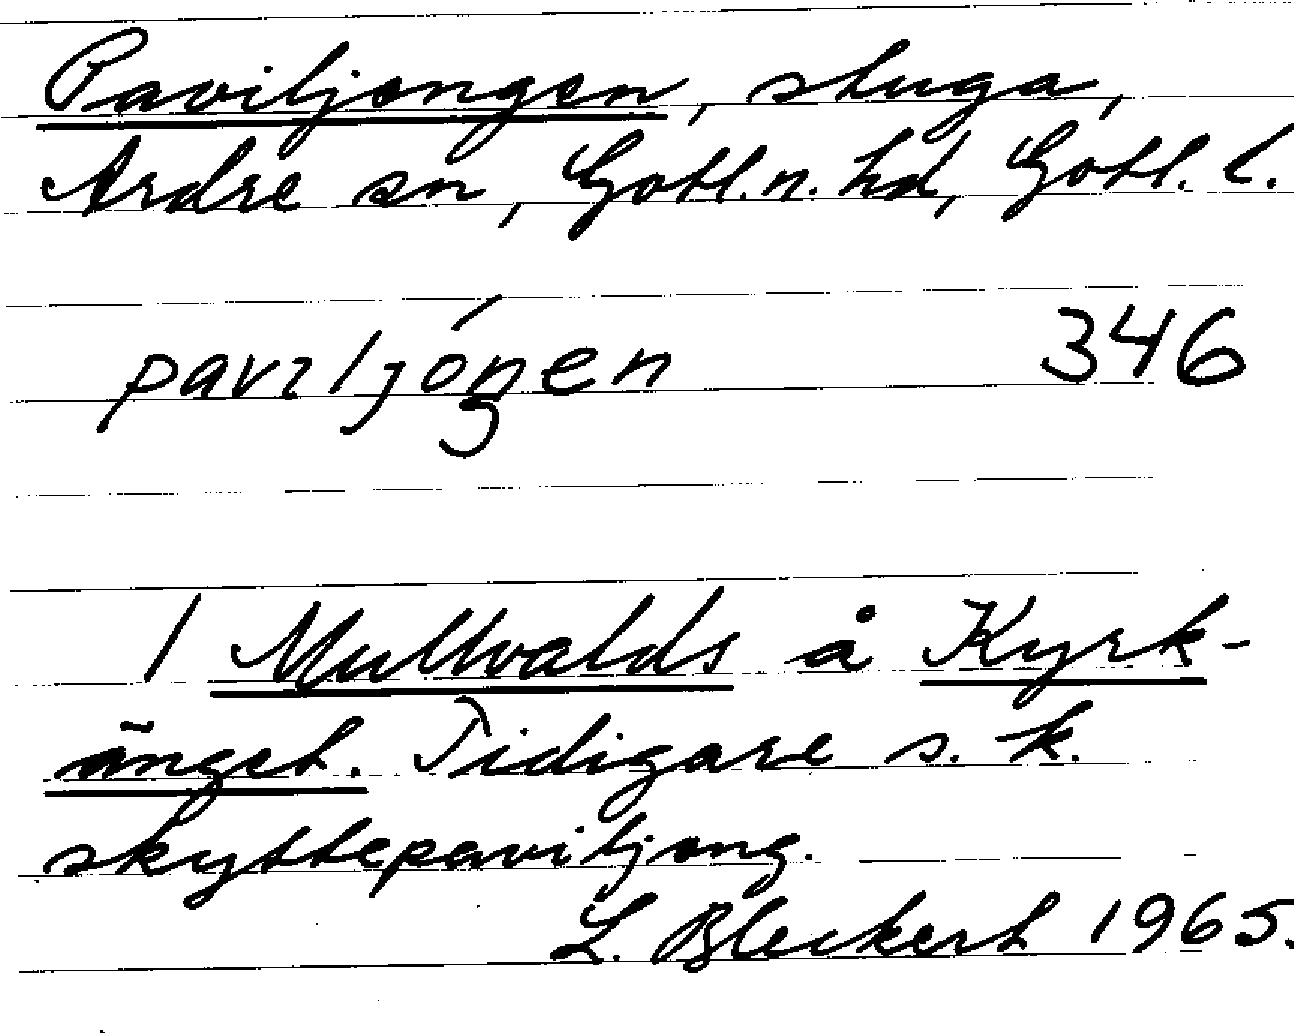 Paviljongen, stuga,
Ardre sn, Gotl. n. hd, Gotl. l.
pavıljóŋen 346
I Mullvalds å Kyrk-
änget. Tidigare s. k.
skyttepaviljong.
L. Bleckert 1965.